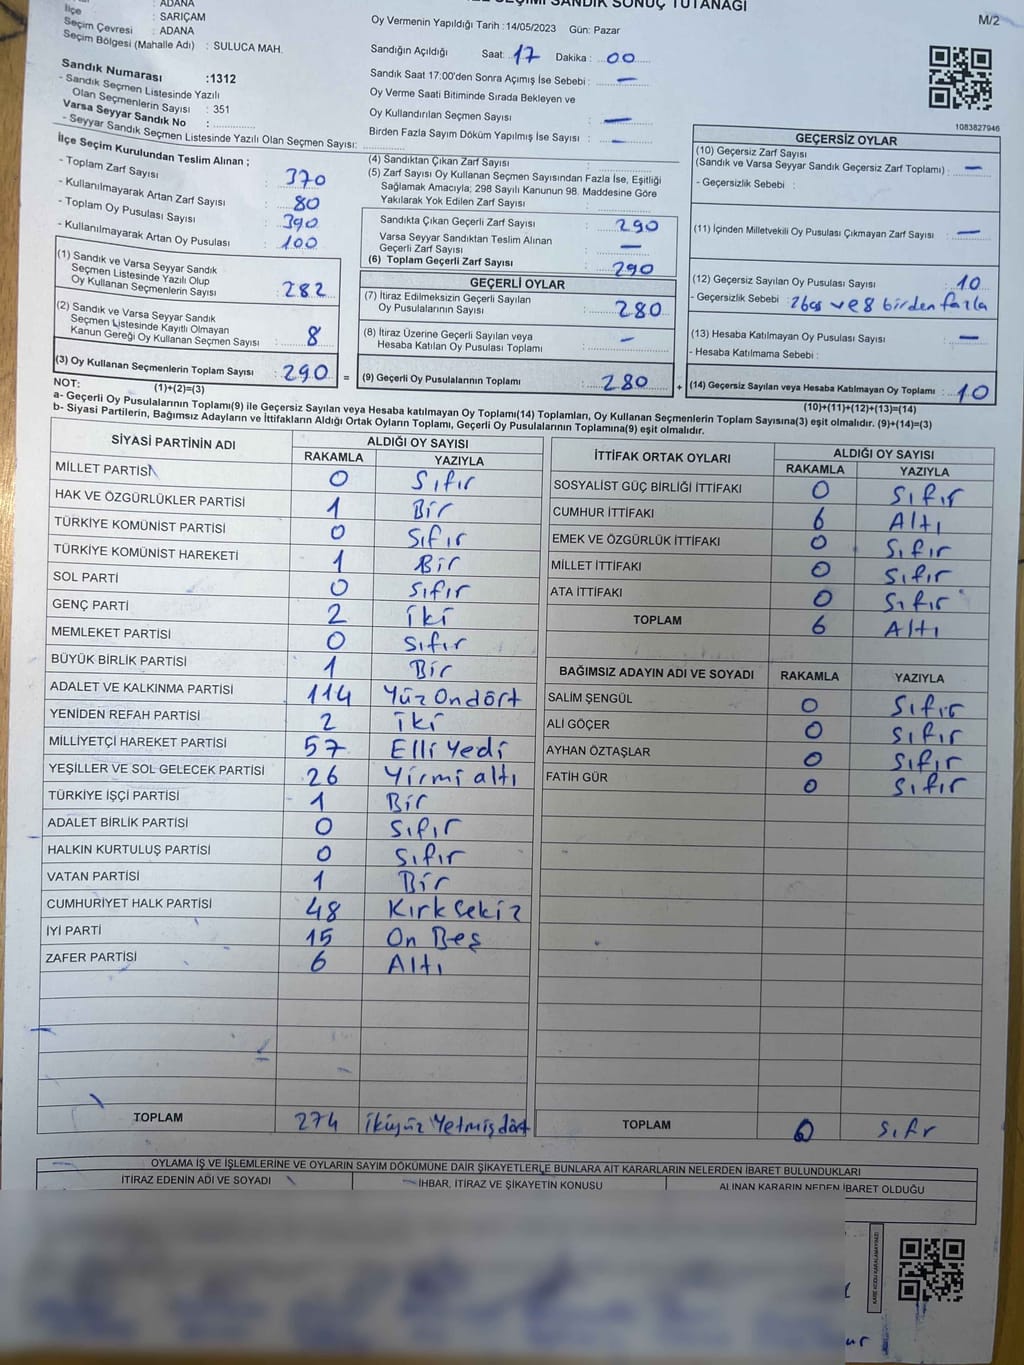 M/2
İlçe : SARIÇAM
Seçim Çevresi : ADANA
Seçim Bölgesi (Mahalle Adı) : SULUCA MAH.
Sandık Numarası :1312
- Sandık Seçmen Listesinde Yazılı
Olan Seçmenlerin Sayısı : 351
Varsa Seyyar Sandık No :
- Seyyar Sandık Seçmen Listesinde Yazılı Olan Seçmen Sayısı:
Oy Vermenin Yapıldığı Tarih : 14/05/2023 Gün: Pazar
Sandığın Açıldığı Saat: 17 Dakika : 00
Sandık Saat 17:00'den Sonra Açımış İse Sebebi : —
Oy Verme Saati Bitiminde Sırada Bekleyen ve
Oy Kullandırılan Seçmen Sayısı : —
Birden Fazla Sayım Döküm Yapılmış İse Sayısı : —
1083827946
İlçe Seçim Kurulundan Teslim Alınan ;
- Toplam Zarf Sayısı : 370
- Kullanılmayarak Artan Zarf Sayısı : 80
- Toplam Oy Pusulası Sayısı : 390
- Kullanılmayarak Artan Oy Pusulası : 100
(1) Sandık ve Varsa Seyyar Sandık
Seçmen Listesinde Yazılı Olup
Oy Kullanan Seçmenlerin Sayısı : 282
(2) Sandık ve Varsa Seyyar Sandık
Seçmen Listesinde Kayıtlı Olmayan
Kanun Gereği Oy Kullanan Seçmen Sayısı : 8
(3) Oy Kullanan Seçmenlerin Toplam Sayısı : 290 =
(1)+(2)=(3)
(4) Sandıktan Çıkan Zarf Sayısı :
(5) Zarf Sayısı Oy Kullanan Seçmen Sayısından Fazla İse, Eşitliği
Sağlamak Amacıyla; 298 Sayılı Kanunun 98. Maddesine Göre
Yakılarak Yok Edilen Zarf Sayısı :
Sandıkta Çıkan Geçerli Zarf Sayısı : 290
Varsa Seyyar Sandıktan Teslim Alınan
Geçerli Zarf Sayısı : —
(6) Toplam Geçerli Zarf Sayısı : 290
GEÇERLİ OYLAR
(7) İtiraz Edilmeksizin Geçerli Sayılan
Oy Pusulalarının Sayısı : 280
(8) İtiraz Üzerine Geçerli Sayılan veya
Hesaba Katılan Oy Pusulası Toplamı : —
(9) Geçerli Oy Pusulalarının Toplamı : 280 +
GEÇERSİZ OYLAR
(10) Geçersiz Zarf Sayısı
(Sandık ve Varsa Seyyar Sandık Geçersiz Zarf Toplamı) : —
- Geçersizlik Sebebi :
(11) İçinden Milletvekili Oy Pusulası Çıkmayan Zarf Sayısı : —
(12) Geçersiz Sayılan Oy Pusulası Sayısı : 10
- Geçersizlik Sebebi : 2 boş ve 8 birden fazla
(13) Hesaba Katılmayan Oy Pusulası Sayısı : —
- Hesaba Katılmama Sebebi :
(14) Geçersiz Sayılan veya Hesaba Katılmayan Oy Toplamı : 10
(10)+(11)+(12)+(13)=(14)
NOT:
a- Geçerli Oy Pusulalarının Toplamı(9) ile Geçersiz Sayılan veya Hesaba katılmayan Oy Toplamı(14) Toplamları, Oy Kullanan Seçmenlerin Toplam Sayısına(3) eşit olmalıdır. (9)+(14)=(3)
b- Siyasi Partilerin, Bağımsız Adayların ve İttifakların Aldığı Ortak Oyların Toplamı, Geçerli Oy Pusulalarının Toplamına(9) eşit olmalıdır.
SİYASİ PARTİNİN ADI ALDIĞI OY SAYISI
RAKAMLA YAZIYLA
MİLLET PARTİSİ 0 Sıfır
HAK VE ÖZGÜRLÜKLER PARTİSİ 1 Bir
TÜRKİYE KOMÜNİST PARTİSİ 0 Sıfır
TÜRKİYE KOMÜNİST HAREKETİ 1 Bir
SOL PARTİ 0 Sıfır
GENÇ PARTİ 2 İki
MEMLEKET PARTİSİ 0 Sıfır
BÜYÜK BİRLİK PARTİSİ 1 Bir
ADALET VE KALKINMA PARTİSİ 114 Yüz Ondört
YENİDEN REFAH PARTİSİ 2 İki
MİLLİYETÇİ HAREKET PARTİSİ 57 Elli Yedi
YEŞİLLER VE SOL GELECEK PARTİSİ 26 Yirmi altı
TÜRKİYE İŞÇİ PARTİSİ 1 Bir
ADALET BİRLİK PARTİSİ 0 Sıfır
HALKIN KURTULUŞ PARTİSİ 0 Sıfır
VATAN PARTİSİ 1 Bir
CUMHURİYET HALK PARTİSİ 48 Kırk Sekiz
İYİ PARTİ 15 On Beş
ZAFER PARTİSİ 6 Altı
TOPLAM 274 İkiyüz Yetmiş dört
İTTİFAK ORTAK OYLARI ALDIĞI OY SAYISI
RAKAMLA YAZIYLA
SOSYALİST GÜÇ BİRLİĞİ İTTİFAKI 0 Sıfır
CUMHUR İTTİFAKI 6 Altı
EMEK VE ÖZGÜRLÜK İTTİFAKI 0 Sıfır
MİLLET İTTİFAKI 0 Sıfır
ATA İTTİFAKI 0 Sıfır
TOPLAM 6 Altı
BAĞIMSIZ ADAYIN ADI VE SOYADI RAKAMLA YAZIYLA
SALİM ŞENGÜL 0 Sıfır
ALİ GÖÇER 0 Sıfır
AYHAN ÖZTAŞLAR 0 Sıfır
FATİH GÜR 0 Sıfır
TOPLAM 0 Sıfr
OYLAMA İŞ VE İŞLEMLERİNE VE OYLARIN SAYIM DÖKÜMÜNE DAİR ŞİKAYETLERLE BUNLARA AİT KARARLARIN NELERDEN İBARET BULUNDUKLARI
İTİRAZ EDENİN ADI VE SOYADI İHBAR, İTİRAZ VE ŞİKAYETİN KONUSU ALINAN KARARIN NEDEN İBARET OLDUĞU
KARE KODU KARALAMAYINIZ!